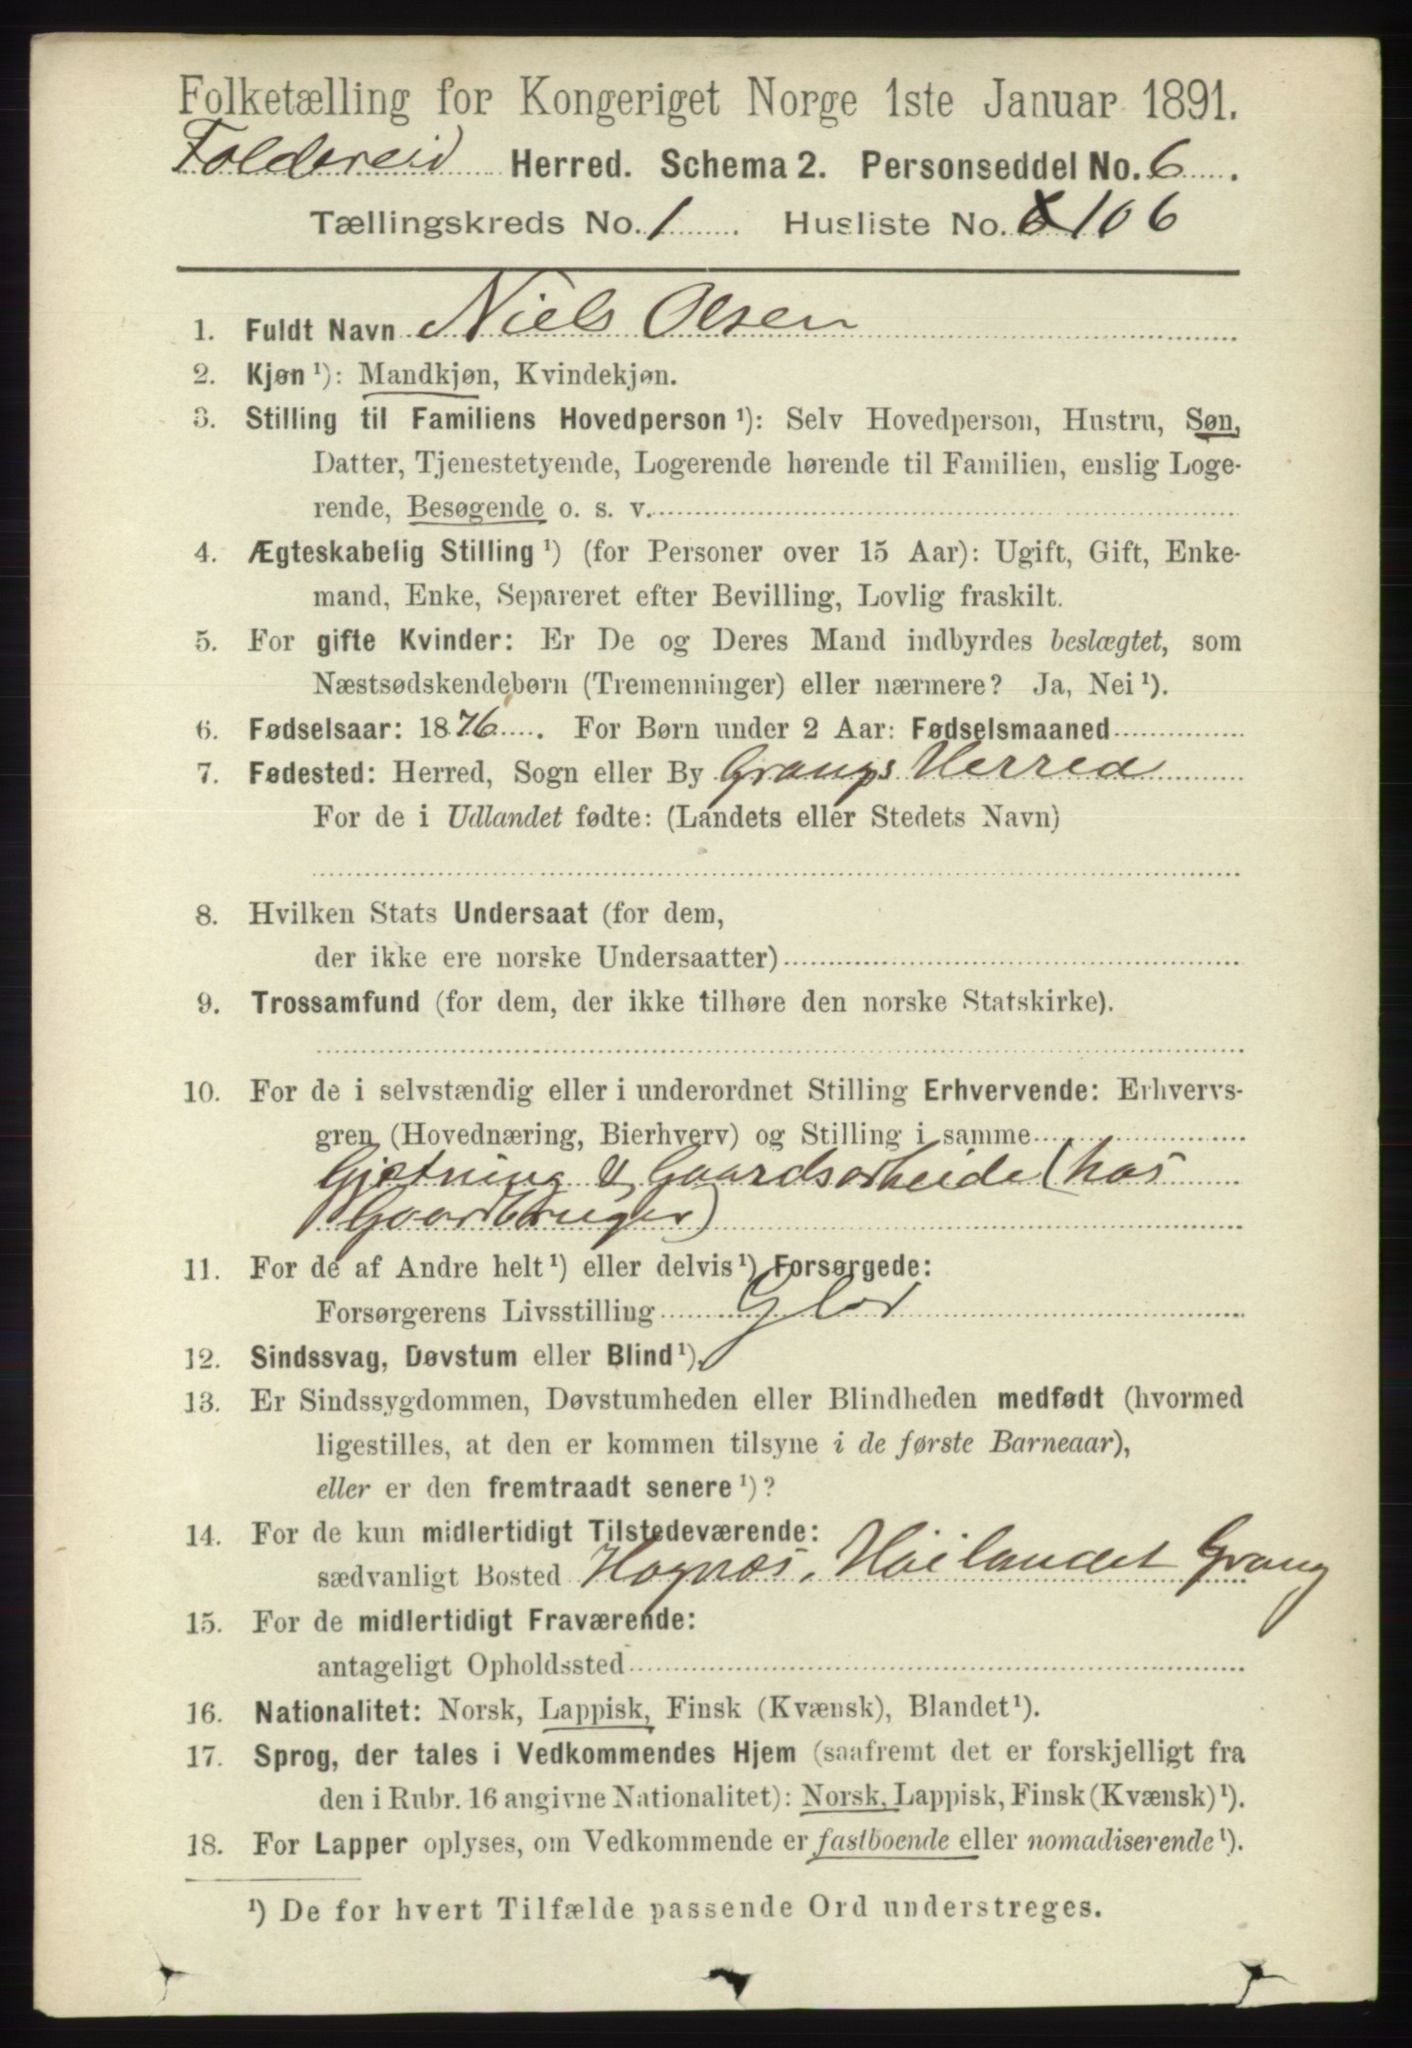 Folketælling for Kongeriget Norge 1ste Januar 1891.
Foldereid Herred. Schema 2. Personseddel No. 6.
Tællingskreds No. 1. Husliste No. 6 106
1. Fuldt Navn Niels Olsen
2. Kjøn ¹): Mandkjøn, Kvindekjøn.
3. Stilling til Familiens Hovedperson ¹): Selv Hovedperson, Hustru, Søn,
Datter, Tjenestetyende, Logerende hørende til Familien, enslig Loge-
rende, Besøgende o. s. v.
4. Ægteskabelig Stilling ¹) (for Personer over 15 Aar): Ugift, Gift, Enke-
mand, Enke, Separeret efter Bevilling, Lovlig fraskilt.
5. For gifte Kvinder: Er De og Deres Mand indbyrdes beslægtet, som
Næstsødskendebørn (Tremenninger) eller nærmere? Ja, Nei ¹).
6. Fødselsaar: 1876. For Børn under 2 Aar: Fødselsmaaned
7. Fødested: Herred, Sogn eller By Grangs Herred
For de i Udlandet fødte: (Landets eller Stedets Navn)
8. Hvilken Stats Undersaat (for dem,
der ikke ere norske Undersaatter)
9. Trossamfund (for dem, der ikke tilhøre den norske Statskirke).
10. For de i selvstændig eller i underordnet Stilling Erhvervende: Erhvervs-
gren (Hovednæring, Bierhverv) og Stilling i samme
Gjetning & Gaardsarbeide (hos
Gaardbruger)
11. For de af Andre helt ¹) eller delvis ¹) Forsørgede:
Forsørgerens Livsstilling
12. Sindssvag, Døvstum eller Blind ¹).
13. Er Sindssygdommen, Døvstumheden eller Blindheden medfødt (hvormed
ligestilles, at den er kommen tilsyne i de første Barneaar),
eller er den fremtraadt senere ¹)?
14. For de kun midlertidigt Tilstedeværende:
sædvanligt Bosted Hognæs, Høilandet Grang
15. For de midlertidigt Fraværende:
antageligt Opholdssted
16. Nationalitet: Norsk, Lappisk, Finsk (Kvænsk), Blandet ¹).
17. Sprog, der tales i Vedkommendes Hjem (saafremt det er forskjelligt fra
den i Rubr. 16 angivne Nationalitet): Norsk, Lappisk, Finsk (Kvænsk) ¹).
18. For Lapper oplyses, om Vedkommende er fastboende eller nomadiserende ¹).
¹) De for hvert Tilfælde passende Ord understreges.